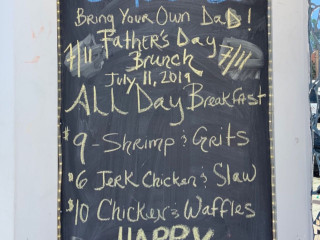 Bring Your Own DaD!
7/11 Father's Day 7/11
Brunch
July 11, 2019
All Day Breakfest
$9 - Shrimp & Grits
$6 Jerk Chicken & Slaw
$10 Chicken & Waffles
HAPPY